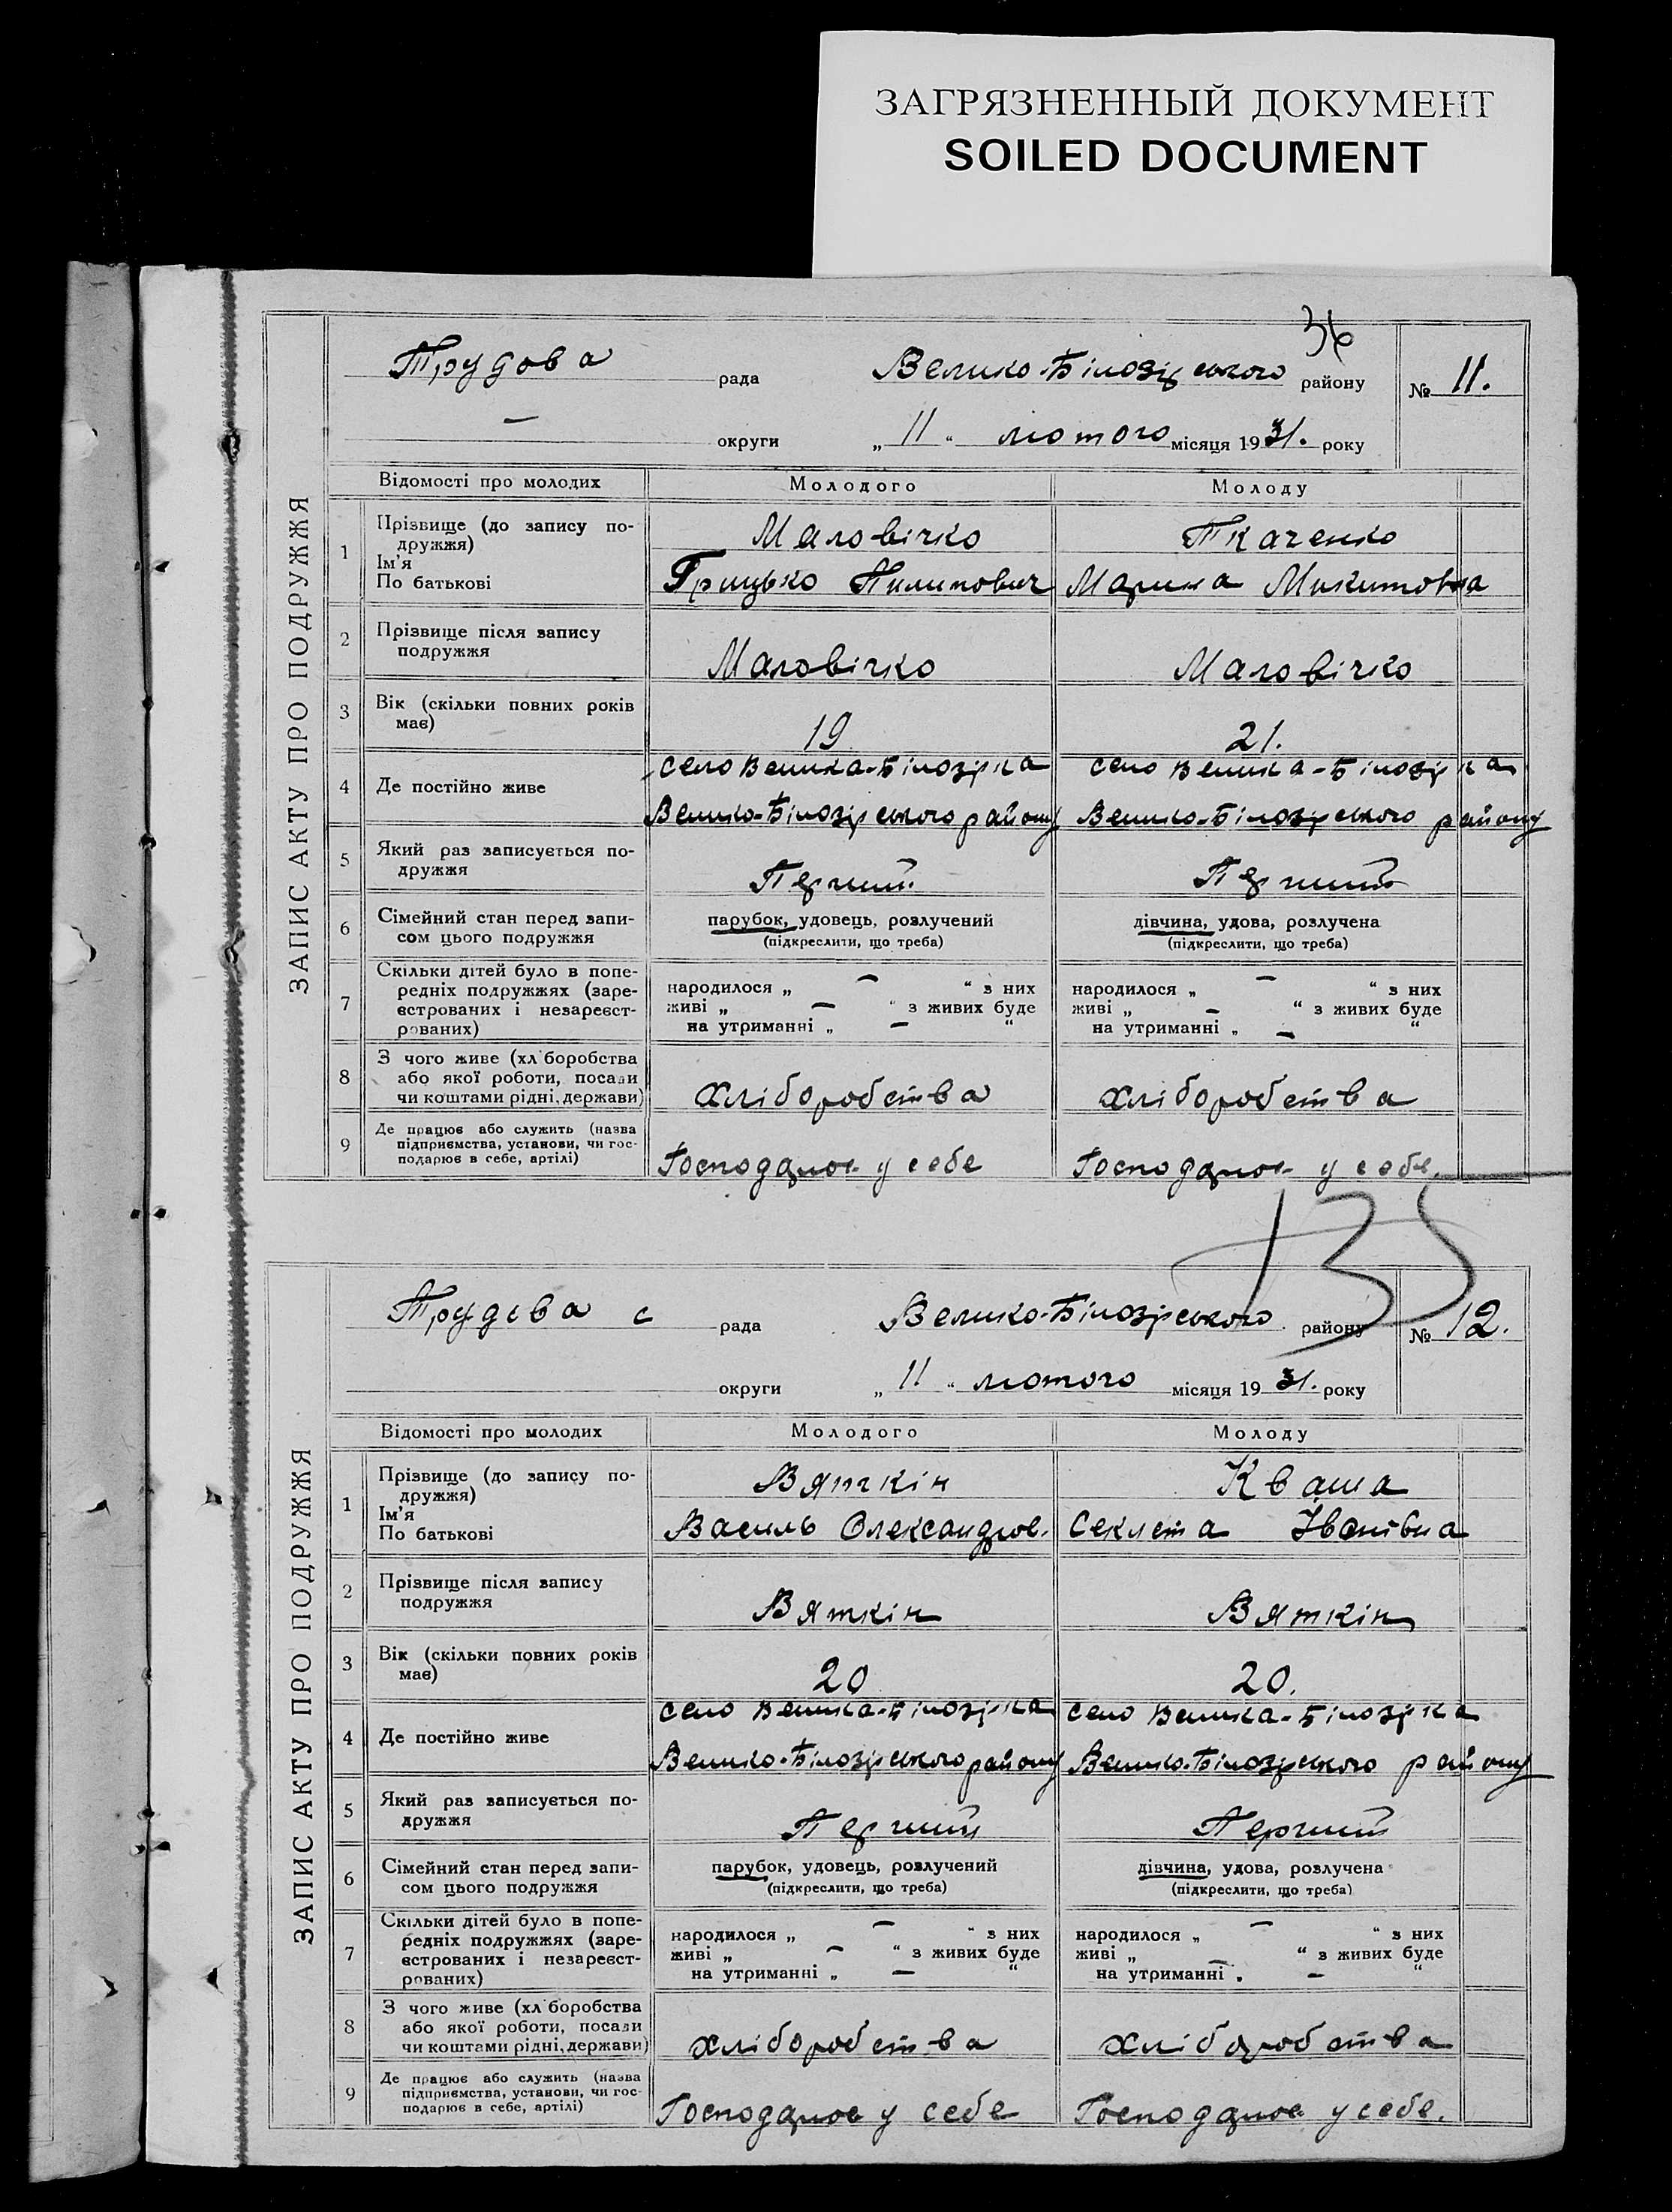 ЗАГРЯЗНЕННЫЙ ДОКУМЕНТ
SOILED DOCUMENT
36
ЗАПИС АКТУ ПРО ПОДРУЖЖЯ
Трудова рада Велико-Білозірського району № 11.
— округи „ 11 “ лютого місяця 19 31. року
Відомості про молодих Молодого Молоду
1 Прізвище (до запису по-
дружжя) Маловічко Ткаченко
Ім'я
По батькові Грицько Пилипович Марина Микитовна
2 Прізвище після запису
подружжя Маловічко Маловічко
3 Вік (скільки повних років
має) 19 21.
село Велика-Білозірка село Велика-Білозірка
4 Де постійно живе
Велико-Білозірського району Велико-Білозірського району
5 Який раз записується по-
дружжя Перший Перший
6 Сімейний стан перед запи- парубок, удовець, розлучений дівчина, удова, розлучена
сом цього подружжя (підкреслити, що треба) (підкреслити, що треба)
7 Скільки дітей було в попе-
редніх подружжях (заре- народилося „ — “ з них народилося „ — “ з них
єстрованих і незареєст- живі „ — “ з живих буде живі „ — “ з живих буде
рованих) на утриманні „ — “ на утриманні „ — “
8 З чого живе (хл боробства
або якої роботи, посади
чи коштами рідні, держави) хліборобства хліборобства
9 Де працює або служить (назва
підприємства, установи, чи гос-
подарює в себе, артілі) Господарює у себе Господарює у себе.
135
ЗАПИС АКТУ ПРО ПОДРУЖЖЯ
Трудова с рада Велико-Білозірського району № 12.
округи „ 11 “ лютого місяця 19 31. року
Відомості про молодих Молодого Молоду
1 Прізвище (до запису по-
дружжя) Вяткін Кваша
Ім'я
По батькові Василь Олександров. Секлета Іванівна
2 Прізвище після запису
подружжя Вяткін Вяткін
3 Вік (скільки повних років
має) 20 20.
село Велика-Білозірка село Велика-Білозірка
4 Де постійно живе
Велико-Білозірського району Велико-Білозірського району
5 Який раз записується по-
дружжя Перший Перший
6 Сімейний стан перед запи- парубок, удовець, розлучений дівчина, удова, розлучена
сом цього подружжя (підкреслити, що треба) (підкреслити, що треба)
7 Скільки дітей було в попе-
редніх подружжях (заре- народилося „ — “ з них народилося „ — “ з них
єстрованих і незареєст- живі „ — “ з живих буде живі „ — “ з живих буде
рованих) на утриманні „ — “ на утриманні „ — “
8 З чого живе (хл боробства
або якої роботи, посади
чи коштами рідні, держави) хліборобства хліборобства
9 Де працює або служить (назва
підприємства, установи, чи гос-
подарює в себе, артілі) Господарює у себе Господарює у себе.